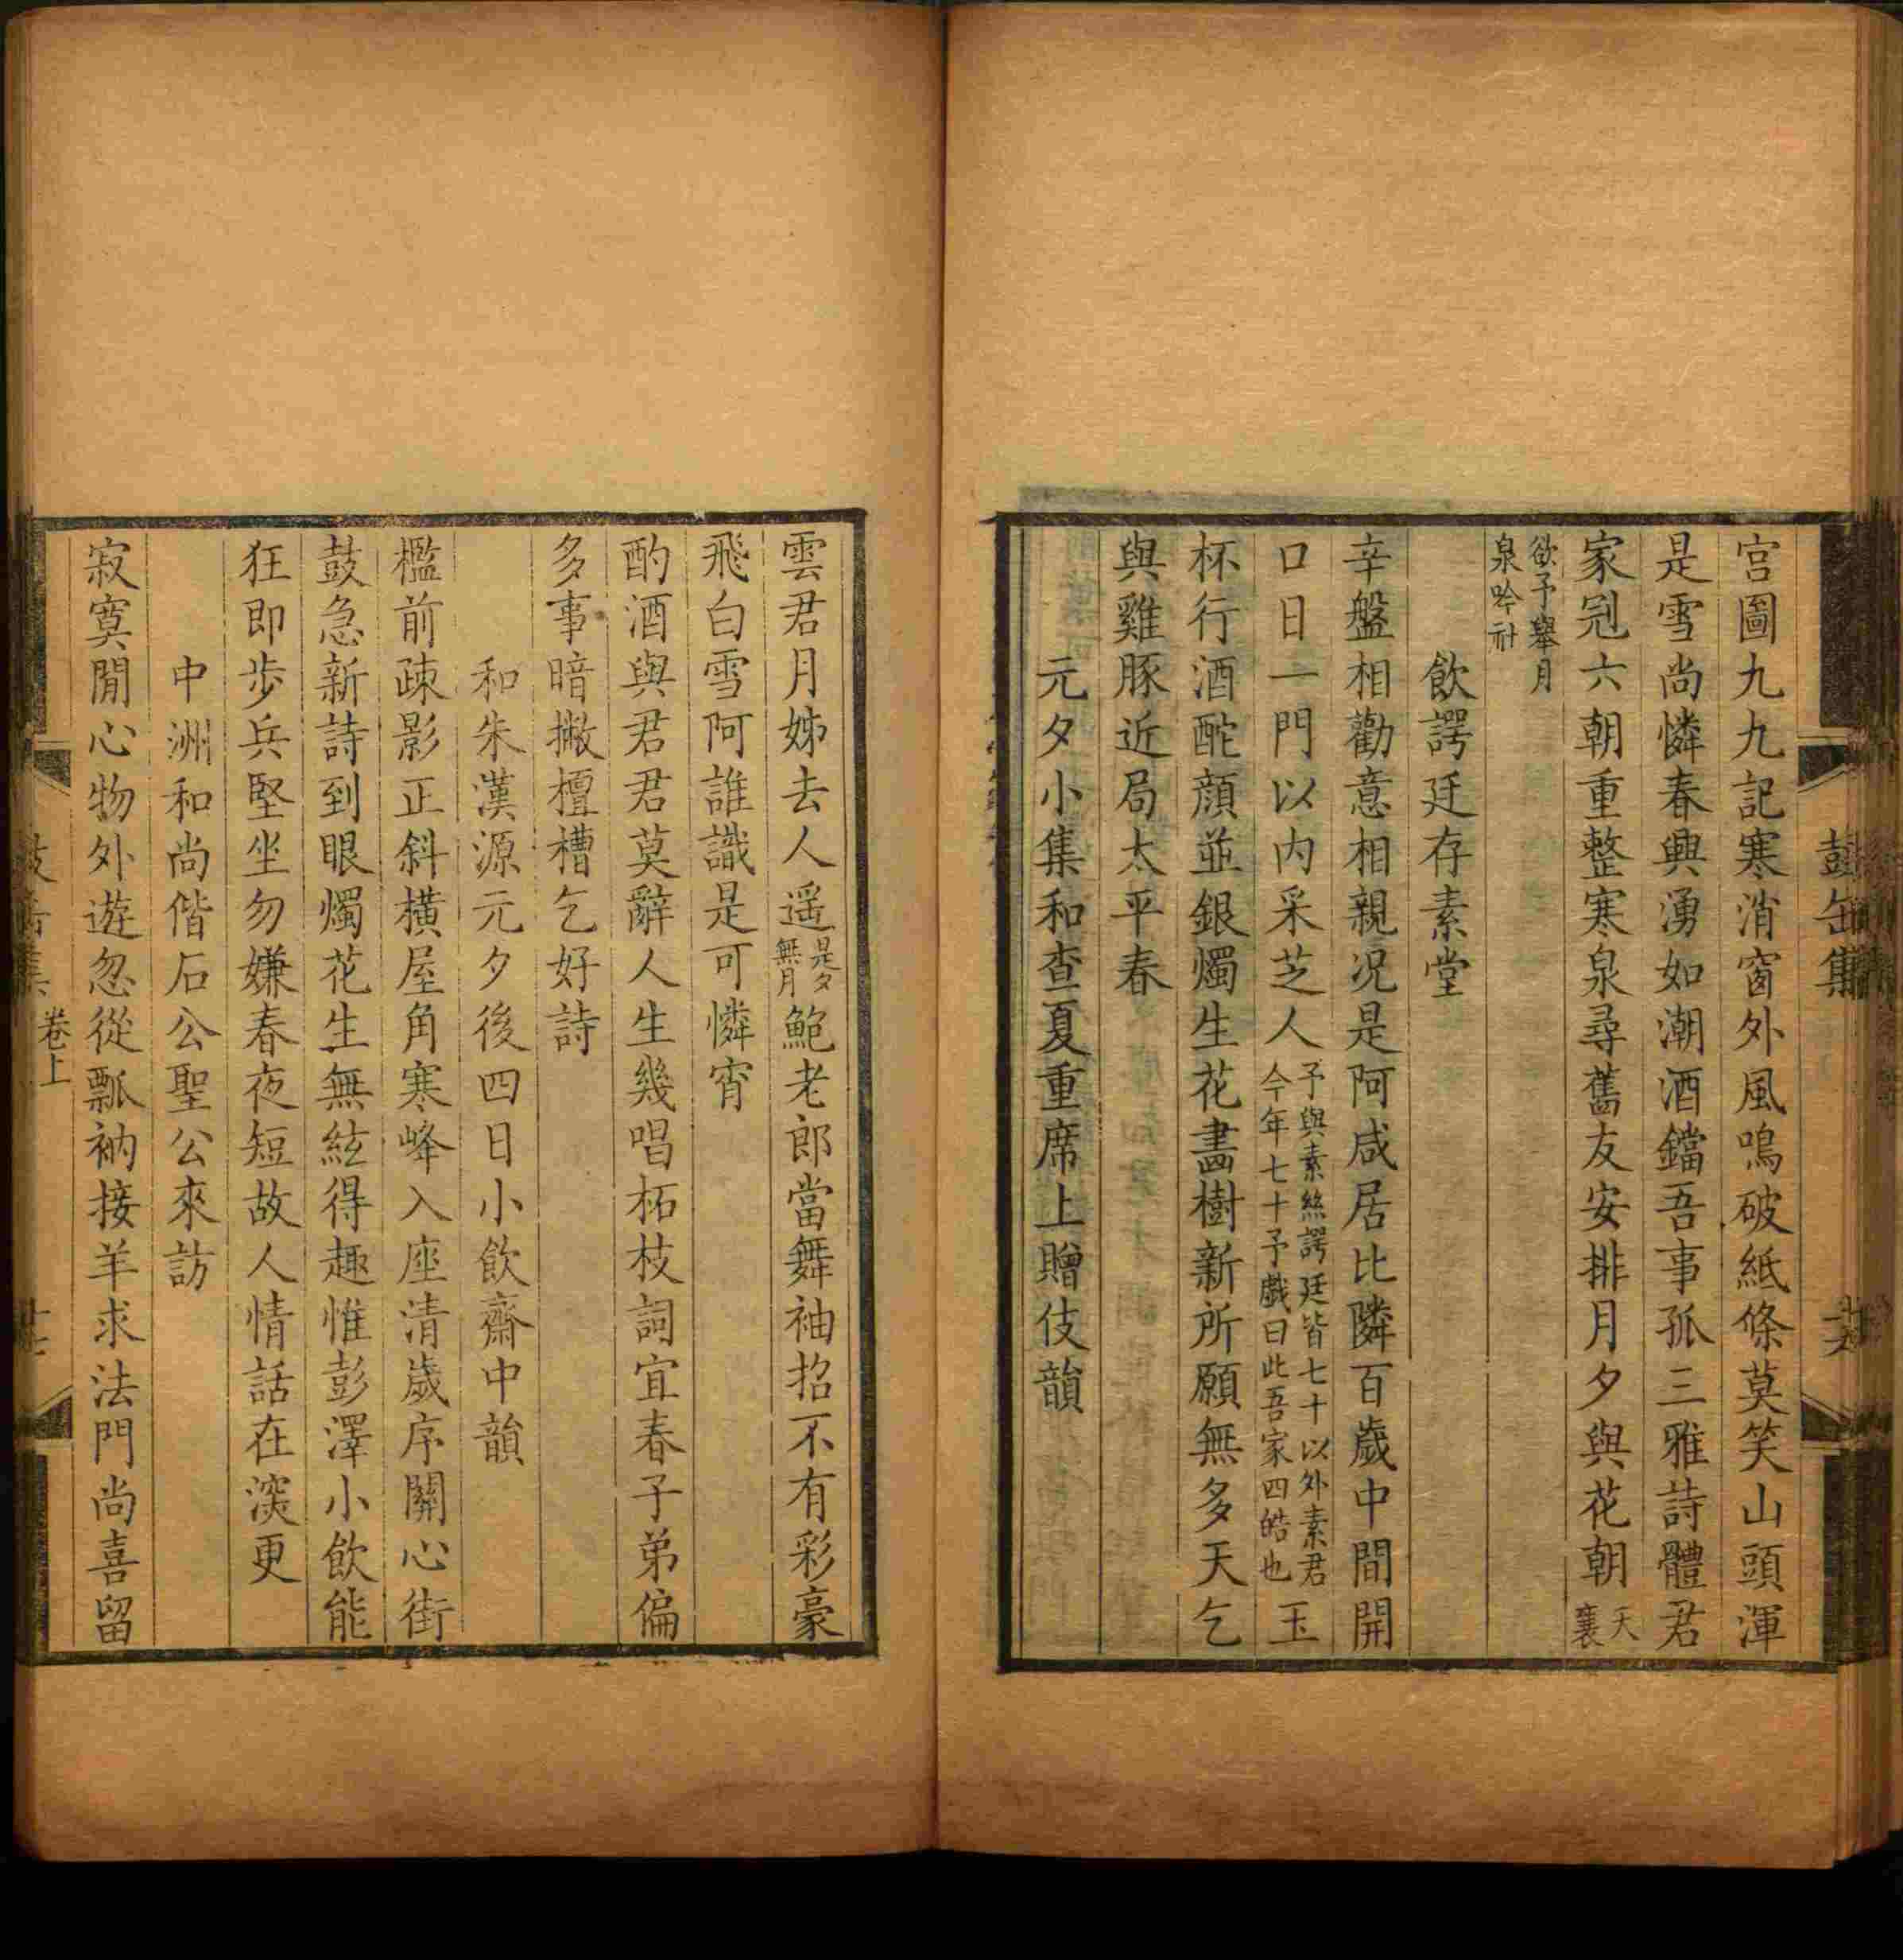 宫圖九九記寒消窗外風鳴破紙條莫笑山頭渾
是雪尚憐春興湧如潮酒鐺吾事孤三雅詩體君
家冠六朝重整寒泉尋舊友安排月夕與花朝天襄
欲予舉月泉吟社
飲諤廷存素堂
辛盤相勸意相親况是阿咸居比隣百歲中間開
口日一門以内采芝人予與素絲諤廷皆七十以外素君今年七十予戲曰此吾家四皓也玉
杯行酒酡顔並銀燭生花畵樹新所願無多天乞
與雞豚近局太平春
元夕小集和查夏重席上贈伎韻
雲君月姊去人遥是夕無月鮑老郎當舞袖招不有彩豪
飛白雪阿誰識是可憐宵
酌酒與君君莫辭人生幾唱柘枝詞宜春子弟偏
多事暗撇檀槽乞好詩
和朱漢源元夕後四日小飲齋中韻
檻前疎影正斜橫屋角寒峰入座清歲序關心街
鼓急新詩到眼燭花生無絃得趣惟彭澤小飲能
狂即步兵堅坐勿嫌春夜短故人情話在深更
中洲和尚偕石公聖公來訪
寂寞閒心物外遊忽從瓢衲接羊求法門尚喜留
卷上